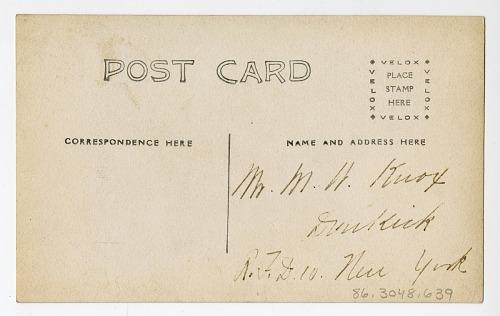 POST CARD
VELOX
PLACE
STAMP
HERE
VELOX
VELOX
VELOX
CORRESPONDENCE HERE
NAME AND ADDRESS HERE
Mr. M. H. Knox
Dunkirk
R.F.D. 10. New York
86.3048.639